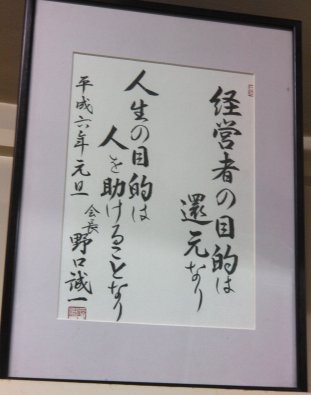 経営者の目的は
還元なり
人生の目的は
人を助けることなり
平成六年元旦
会長 野口誠一